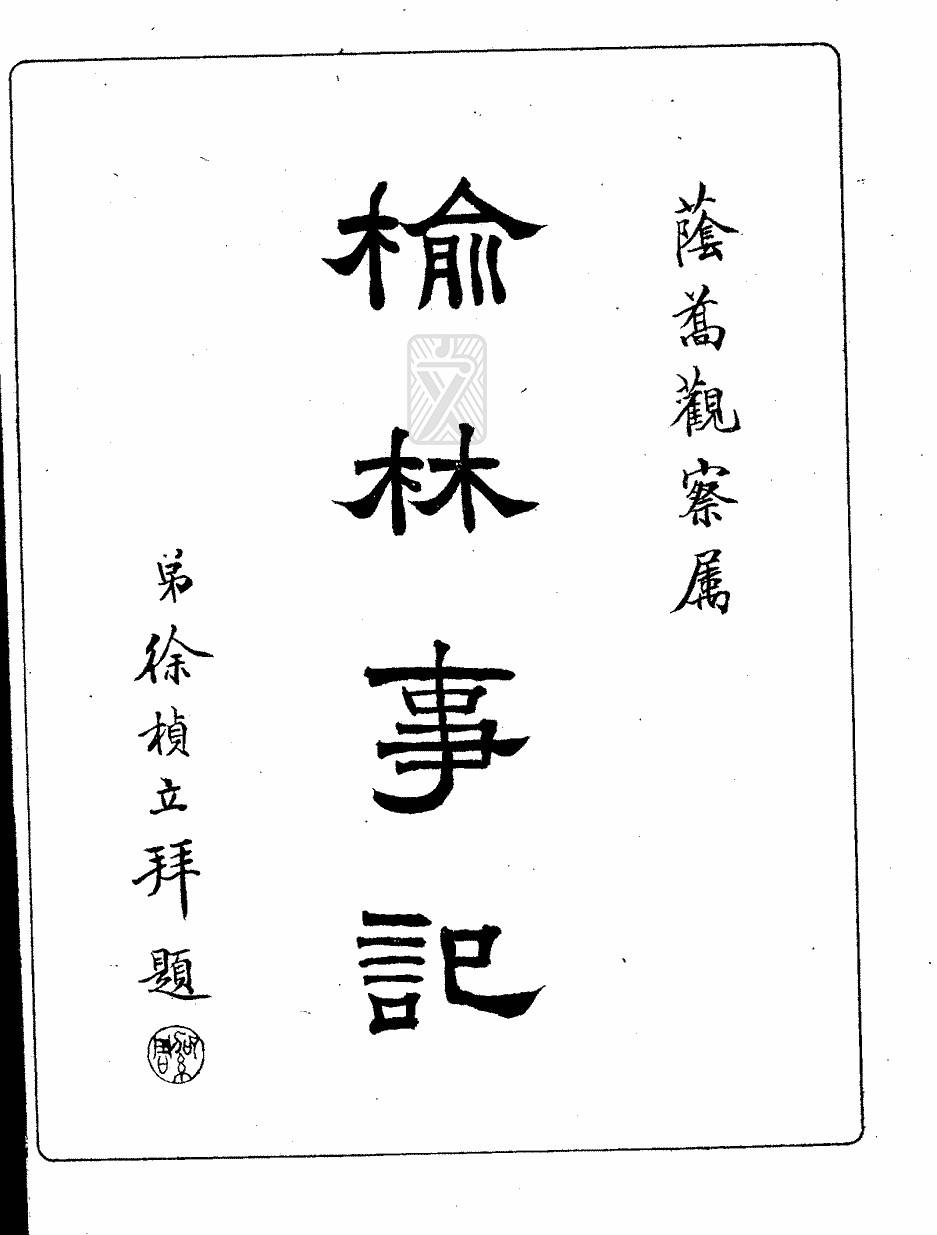 蔭蒿觀察属
榆林事記
弟徐楨立拜題